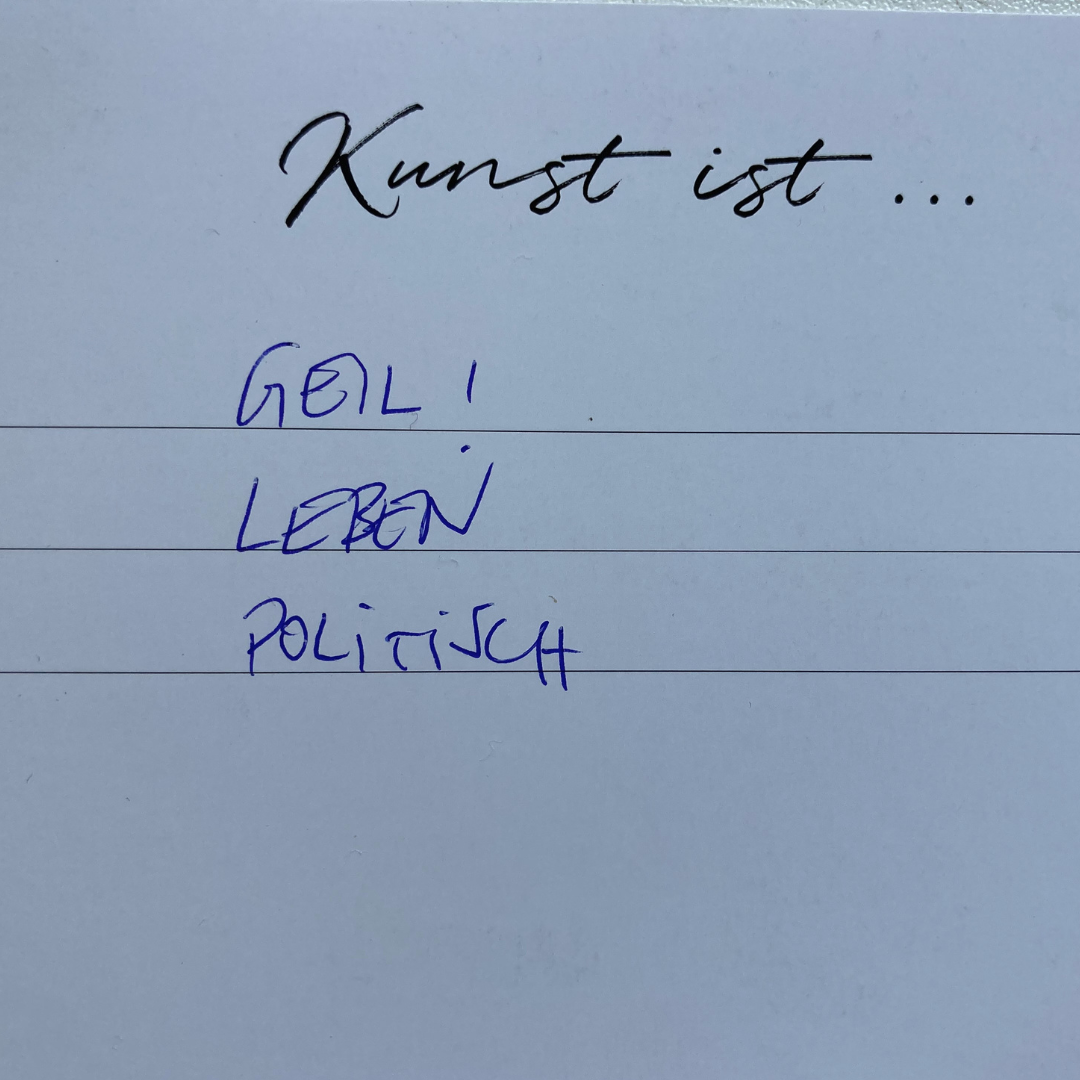 Kunst ist ...
GEIL!
LEBEN
POLiTiSCH